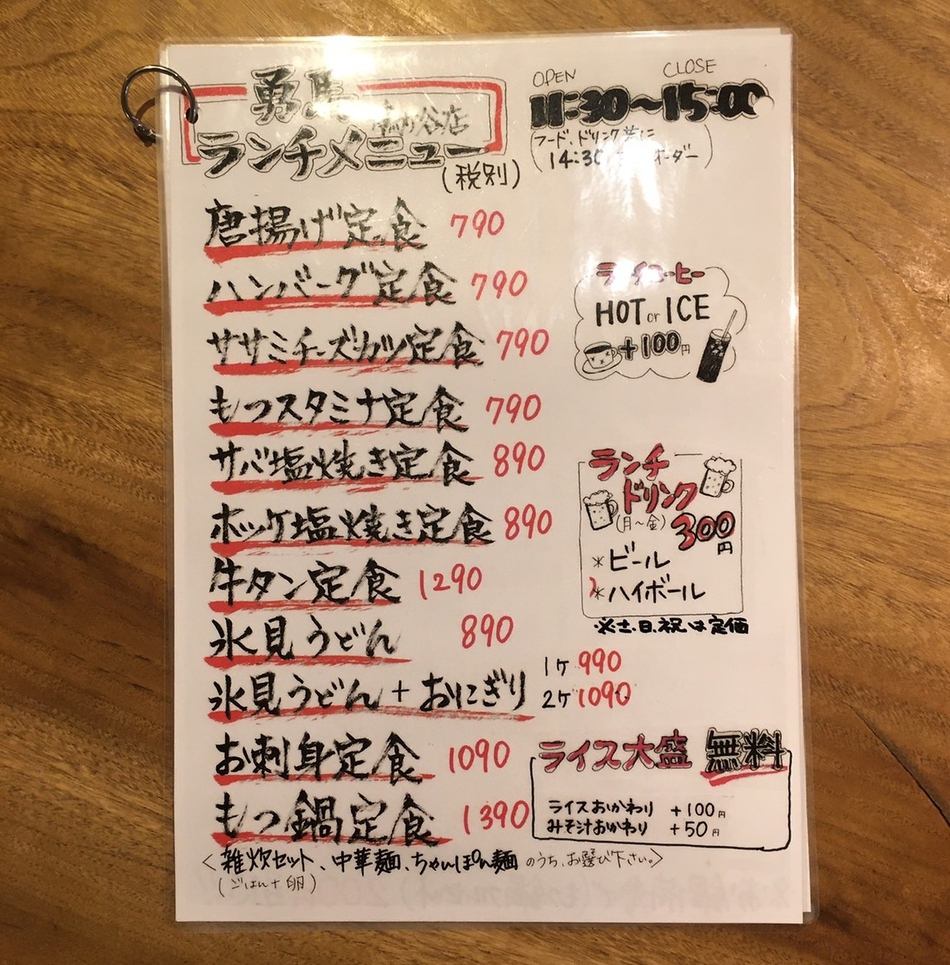 勇馬
谷店
ランチメニュー
(税別)
OPEN CLOSE
11:30〜15:00
フード、ドリンク共に
14:30 オーダー
唐揚げ定食 790
ハンバーグ定食 790
ササミチーズカツ定食 790
もつスタミナ定食 790
サバ塩焼き定食 890
ホッケ塩焼き定食 890
牛タン定食 1290
氷見うどん 890
氷見うどん+おにぎり 1ケ 990
2ケ 1090
お刺身定食 1090
もつ鍋定食 1390
<雑炊セット、中華麺、ちゃんぽん麺のうち、お選び下さい。>
(ごはん+卵)
ランチコーヒー
HOT or ICE
+100円
ランチ
ドリンク
(月〜金) 300円
*ビール
*ハイボール
※土、日、祝は定価
ライス大盛 無料
ライスおかわり +100円
みそ汁おかわり +50円